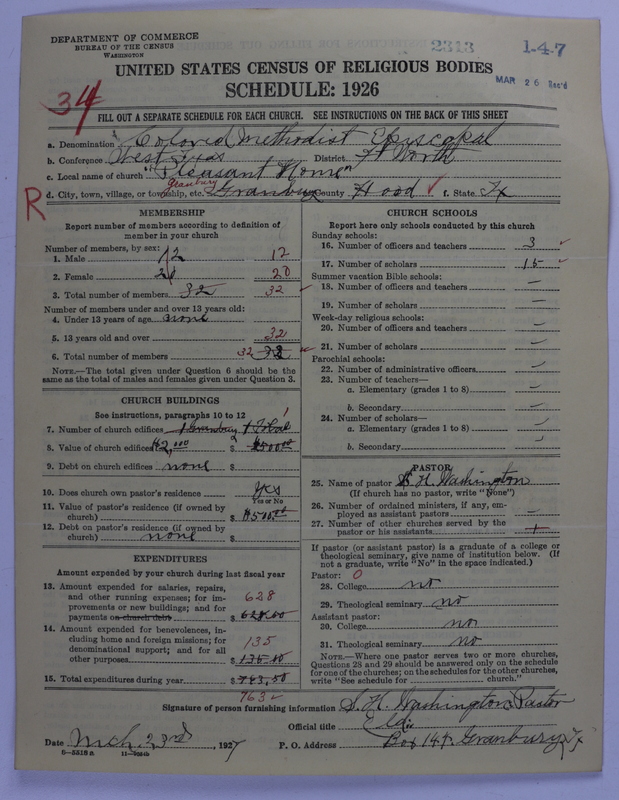 DEPARTMENT OF COMMERCE
BUREAU OF THE CENSUS
WASHINGTON
2313
1-4-7
MAR 26 Rec'd
UNITED STATES CENSUS OF RELIGIOUS BODIES
SCHEDULE: 1926
34
FILL OUT A SEPARATE SCHEDULE FOR EACH CHURCH. SEE INSTRUCTIONS ON THE BACK OF THIS SHEET
a. Denomination Colored Methodist Episcopal
b. Conference West Texas District Ft Worth
c. Local name of church "Pleasant Home"
R
granbury
d. City, town, village, or township, etc. Granbury County Hood ✓ f. State Tx
MEMBERSHIP
Report number of members according to definition of
member in your church
Number of members, by sex:
1. Male 12 12
2. Female 20 20
3. Total number of members 32 32
Number of members under and over 13 years old:
4. Under 13 years of age none
5. 13 years old and over 32
6. Total number of members 32 32
NOTE.—The total given under Question 6 should be the
same as the total of males and females given under Question 3.
CHURCH BUILDINGS
See instructions, paragraphs 10 to 12
7. Number of church edifices 1 Granbury 1
8. Value of church edifices $2,000 $
9. Debt on church edifices none $
10. Does church own pastor's residence Yes
Yes or No
11. Value of pastor's residence (if owned by
church) $ $500.00
12. Debt on pastor's residence (if owned by
church) none $
EXPENDITURES
Amount expended by your church during last fiscal year
13. Amount expended for salaries, repairs,
and other running expenses; for im-
provements or new buildings; and for
payments on church debt $ 628.00
628
14. Amount expended for benevolences, in-
cluding home and foreign missions; for
denominational support; and for all
other purposes $
135
15. Total expenditures during year $ 763.50
763 ✓
CHURCH SCHOOLS
Report here only schools conducted by this church
Sunday schools:
16. Number of officers and teachers 3 ✓
17. Number of scholars 15 ✓
Summer vacation Bible schools:
18. Number of officers and teachers —
19. Number of scholars —
Week-day religious schools:
20. Number of officers and teachers —
21. Number of scholars —
Parochial schools:
22. Number of administrative officers —
23. Number of teachers—
a. Elementary (grades 1 to 8) —
b. Secondary —
24. Number of scholars—
a. Elementary (grades 1 to 8) —
b. Secondary —
PASTOR
25. Name of pastor S. H. Washington
(If church has no pastor, write "None")
26. Number of ordained ministers, if any, em-
ployed as assistant pastors —
27. Number of other churches served by the
pastor or his assistants 1
If pastor (or assistant pastor) is a graduate of a college or
theological seminary, give name of institution below. (If
not a graduate, write "No" in the space indicated.)
Pastor: 0
28. College no
29. Theological seminary no
Assistant pastor:
30. College no
31. Theological seminary no
NOTE.—Where one pastor serves two or more churches,
Questions 28 and 29 should be answered only on the schedule
for one of the churches; on the schedules for the other churches,
write "See schedule for church."
Signature of person furnishing information S. H. Washington, Pastor
Official title
Date Mch. 23rd, 1927 P. O. Address Box 144. Granbury, Tx